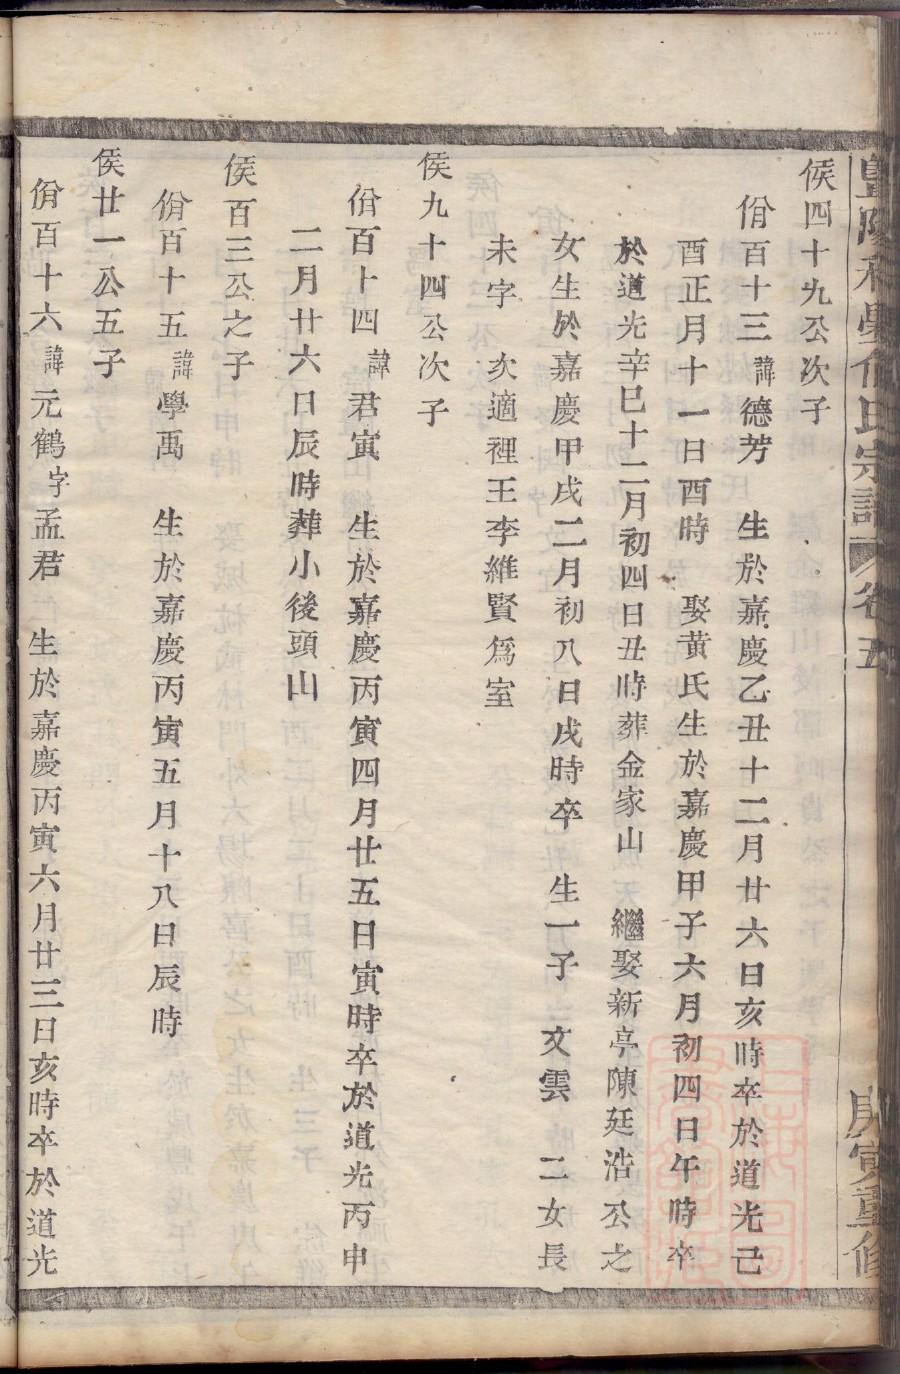 侯四十九公次子
佾百十三諱德芳 生於嘉慶乙丑十二月廿六日亥時卒於道光己
酉正月十一日酉時 娶黄氏生於嘉慶甲子六月初四日午時卒
於道光辛巳十二月初四日丑時葬金家山 繼娶新亭陳廷浩公之
女生於嘉慶甲戌二月初八日戌時卒 生一子 文雲 二女長
未字 次適裡王李維賢爲室
侯九十四公次子
佾百十四諱君寅 生於嘉慶丙寅四月廿五日寅時卒於道光丙申
二月廿六日辰時葬小後頭山
侯百三公之子
佾百十五諱學禹 生於嘉慶丙寅五月十八日辰時
侯廿一公五子
佾百十六諱元鶴字孟君 生於嘉慶丙寅六月廿三日亥時卒於道光
氏宗譜 卷五 庚寅重修